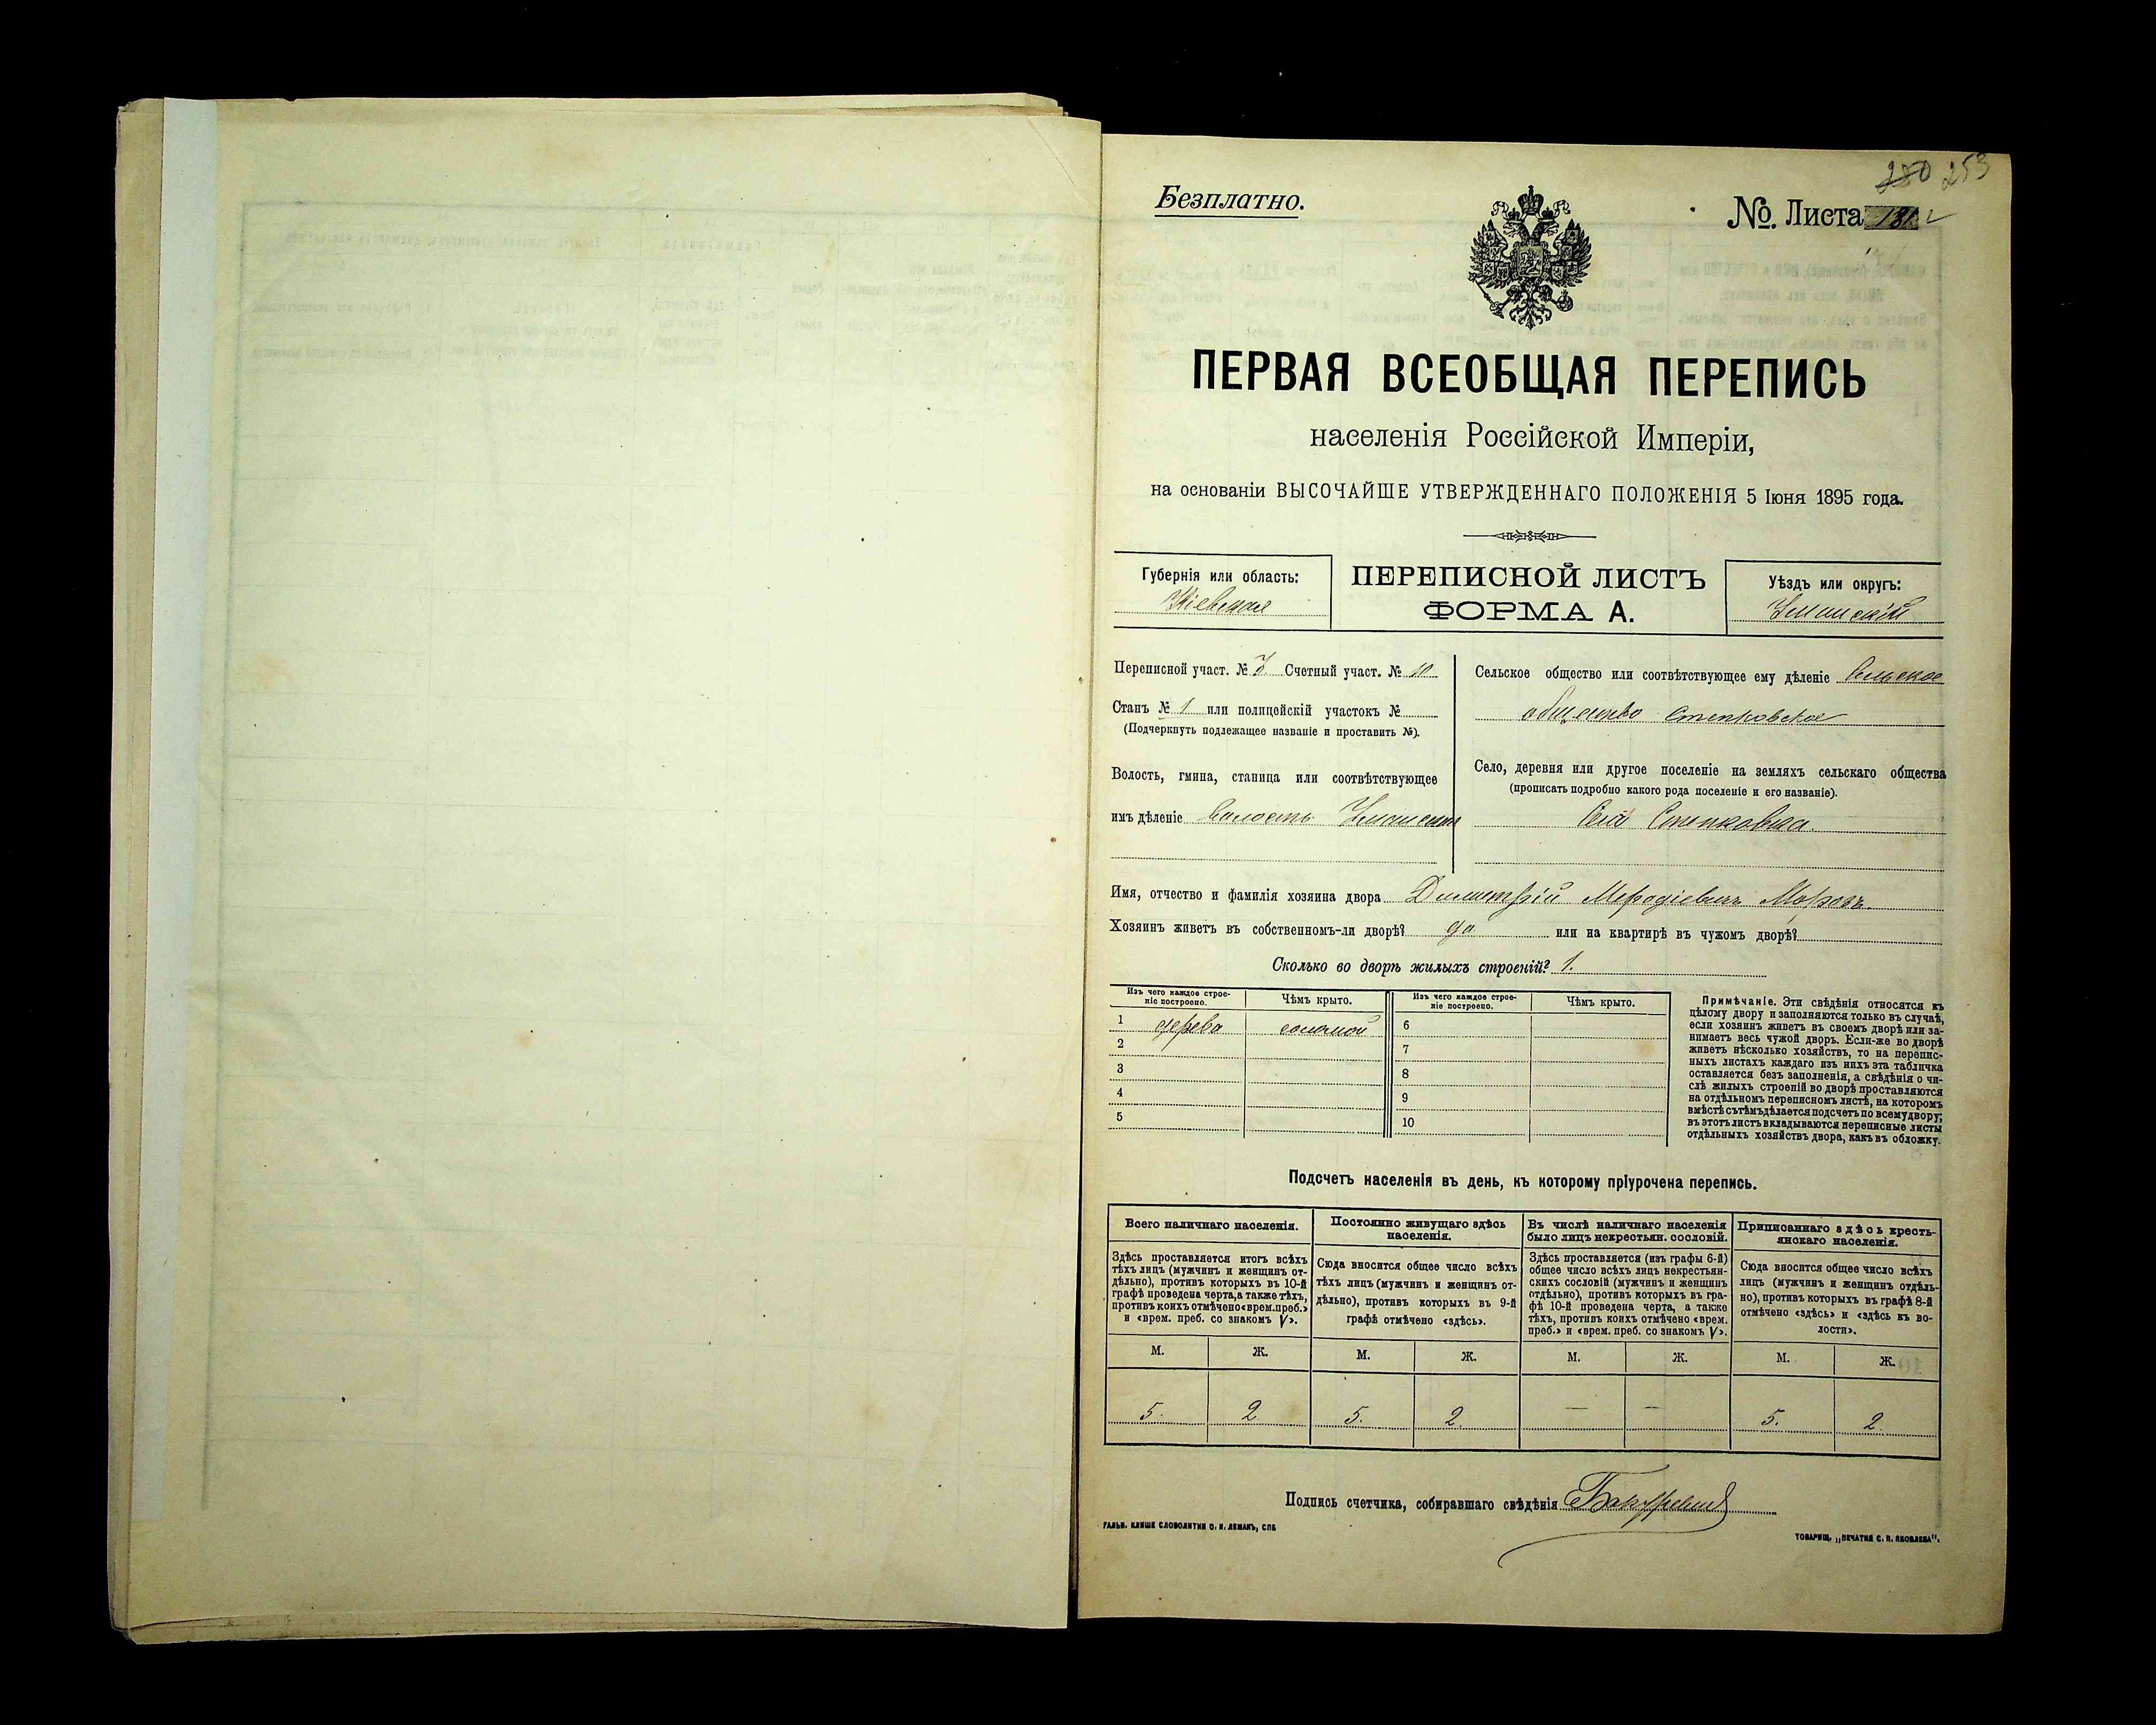 280 253
Безплатно.
№. Листа 181
ПЕРВАЯ ВСЕОБЩАЯ ПЕРЕПИСЬ
населенія Россійской Имперіи,
на основаніи ВЫСОЧАЙШЕ УТВЕРЖДЕННАГО ПОЛОЖЕНІЯ 5 Іюня 1895 года.
Губернія или область:
Кіевская
ПЕРЕПИСНОЙ ЛИСТЪ
ФОРМА А.
Уѣздъ или округъ:
Уманскій
Переписной участ. № 3 Счетный участ. № 10
Станъ № 1 или полицейскій участокъ №
(Подчеркнуть подлежащее названіе и проставить №).
Волость, гмина, станица или соотвѣтствующее
имъ дѣленіе волость Уманская
Сельское общество или соотвѣтствующее ему дѣленіе Сельское
общество Степковское
Село, деревня или другое поселеніе на земляхъ сельскаго общества
(прописать подробно какого рода поселеніе и его названіе).
Село Степковка.
Имя, отчество и фамилія хозяина двора Димитрій Мефодіевичъ Морозъ.
Хозяинъ живетъ въ собственномъ-ли дворѣ? да или на квартирѣ въ чужомъ дворѣ?
Сколько во дворѣ жилыхъ строеній? 1.
Изъ чего каждое строе-
ніе построено.
Чѣмъ крыто.
Изъ чего каждое строе-
ніе построено.
Чѣмъ крыто.
1 дерева соломой 6
2 7
3 8
4 9
5 10
Примѣчаніе. Эти свѣдѣнія относятся къ
цѣлому двору и заполняются только въ случаѣ,
если хозяинъ живетъ въ своемъ дворѣ или за-
нимаетъ весь чужой дворъ. Если-же во дворѣ
живетъ нѣсколько хозяйствъ, то на перепис-
ныхъ листахъ каждаго изъ нихъ эта табличка
оставляется безъ заполненія, а свѣдѣнія о чи-
слѣ жилыхъ строеній во дворѣ проставляются
на отдѣльномъ переписномъ листѣ, на которомъ
вмѣстѣ съ тѣмъ дѣлается подсчетъ по всему двору;
въ этотъ листъ вкладываются переписные листы
отдѣльныхъ хозяйствъ двора, какъ въ обложку.
Подсчетъ населенія въ день, къ которому пріурочена перепись.
Всего наличнаго населенія.
Здѣсь проставляется итогъ всѣхъ
тѣхъ лицъ (мужчинъ и женщинъ от-
дѣльно), противъ которыхъ въ 10-й
графѣ проведена черта, а также тѣхъ,
противъ коихъ отмѣчено «врем. преб.»
и «врем. преб. со знакомъ V».
Постоянно живущаго здѣсь
населенія.
Сюда вносится общее число всѣхъ
тѣхъ лицъ (мужчинъ и женщинъ от-
дѣльно), противъ которыхъ въ 9-й
графѣ отмѣчено «здѣсь».
Въ числѣ наличнаго населенія
было лицъ некрестьян. сословій.
Здѣсь проставляется (изъ графы 6-й)
общее число всѣхъ лицъ некрестьян-
скихъ сословій (мужчинъ и женщинъ
отдѣльно), противъ которыхъ въ гра-
фѣ 10-й проведена черта, а также
тѣхъ, противъ коихъ отмѣчено «врем.
преб.» и «врем. преб. со знакомъ V».
Приписаннаго здѣсь кресть-
янскаго населенія.
Сюда вносится общее число всѣхъ
лицъ (мужчинъ и женщинъ отдѣль-
но), противъ которыхъ въ графѣ 8-й
отмѣчено «здѣсь» и «здѣсь къ во-
лости».
М. Ж. М. Ж. М. Ж. М. Ж.
5. 2. 5. 2. — — 5. 2.
Подпись счетчика, собиравшаго свѣдѣнія
ГАЛЬВ. КЛИШЕ СЛОВОЛИТНИ О. И. ЛЕМАНЪ, СПБ
ТОВАРИЩ. „ПЕЧАТНЯ С. П. ЯКОВЛЕВА".